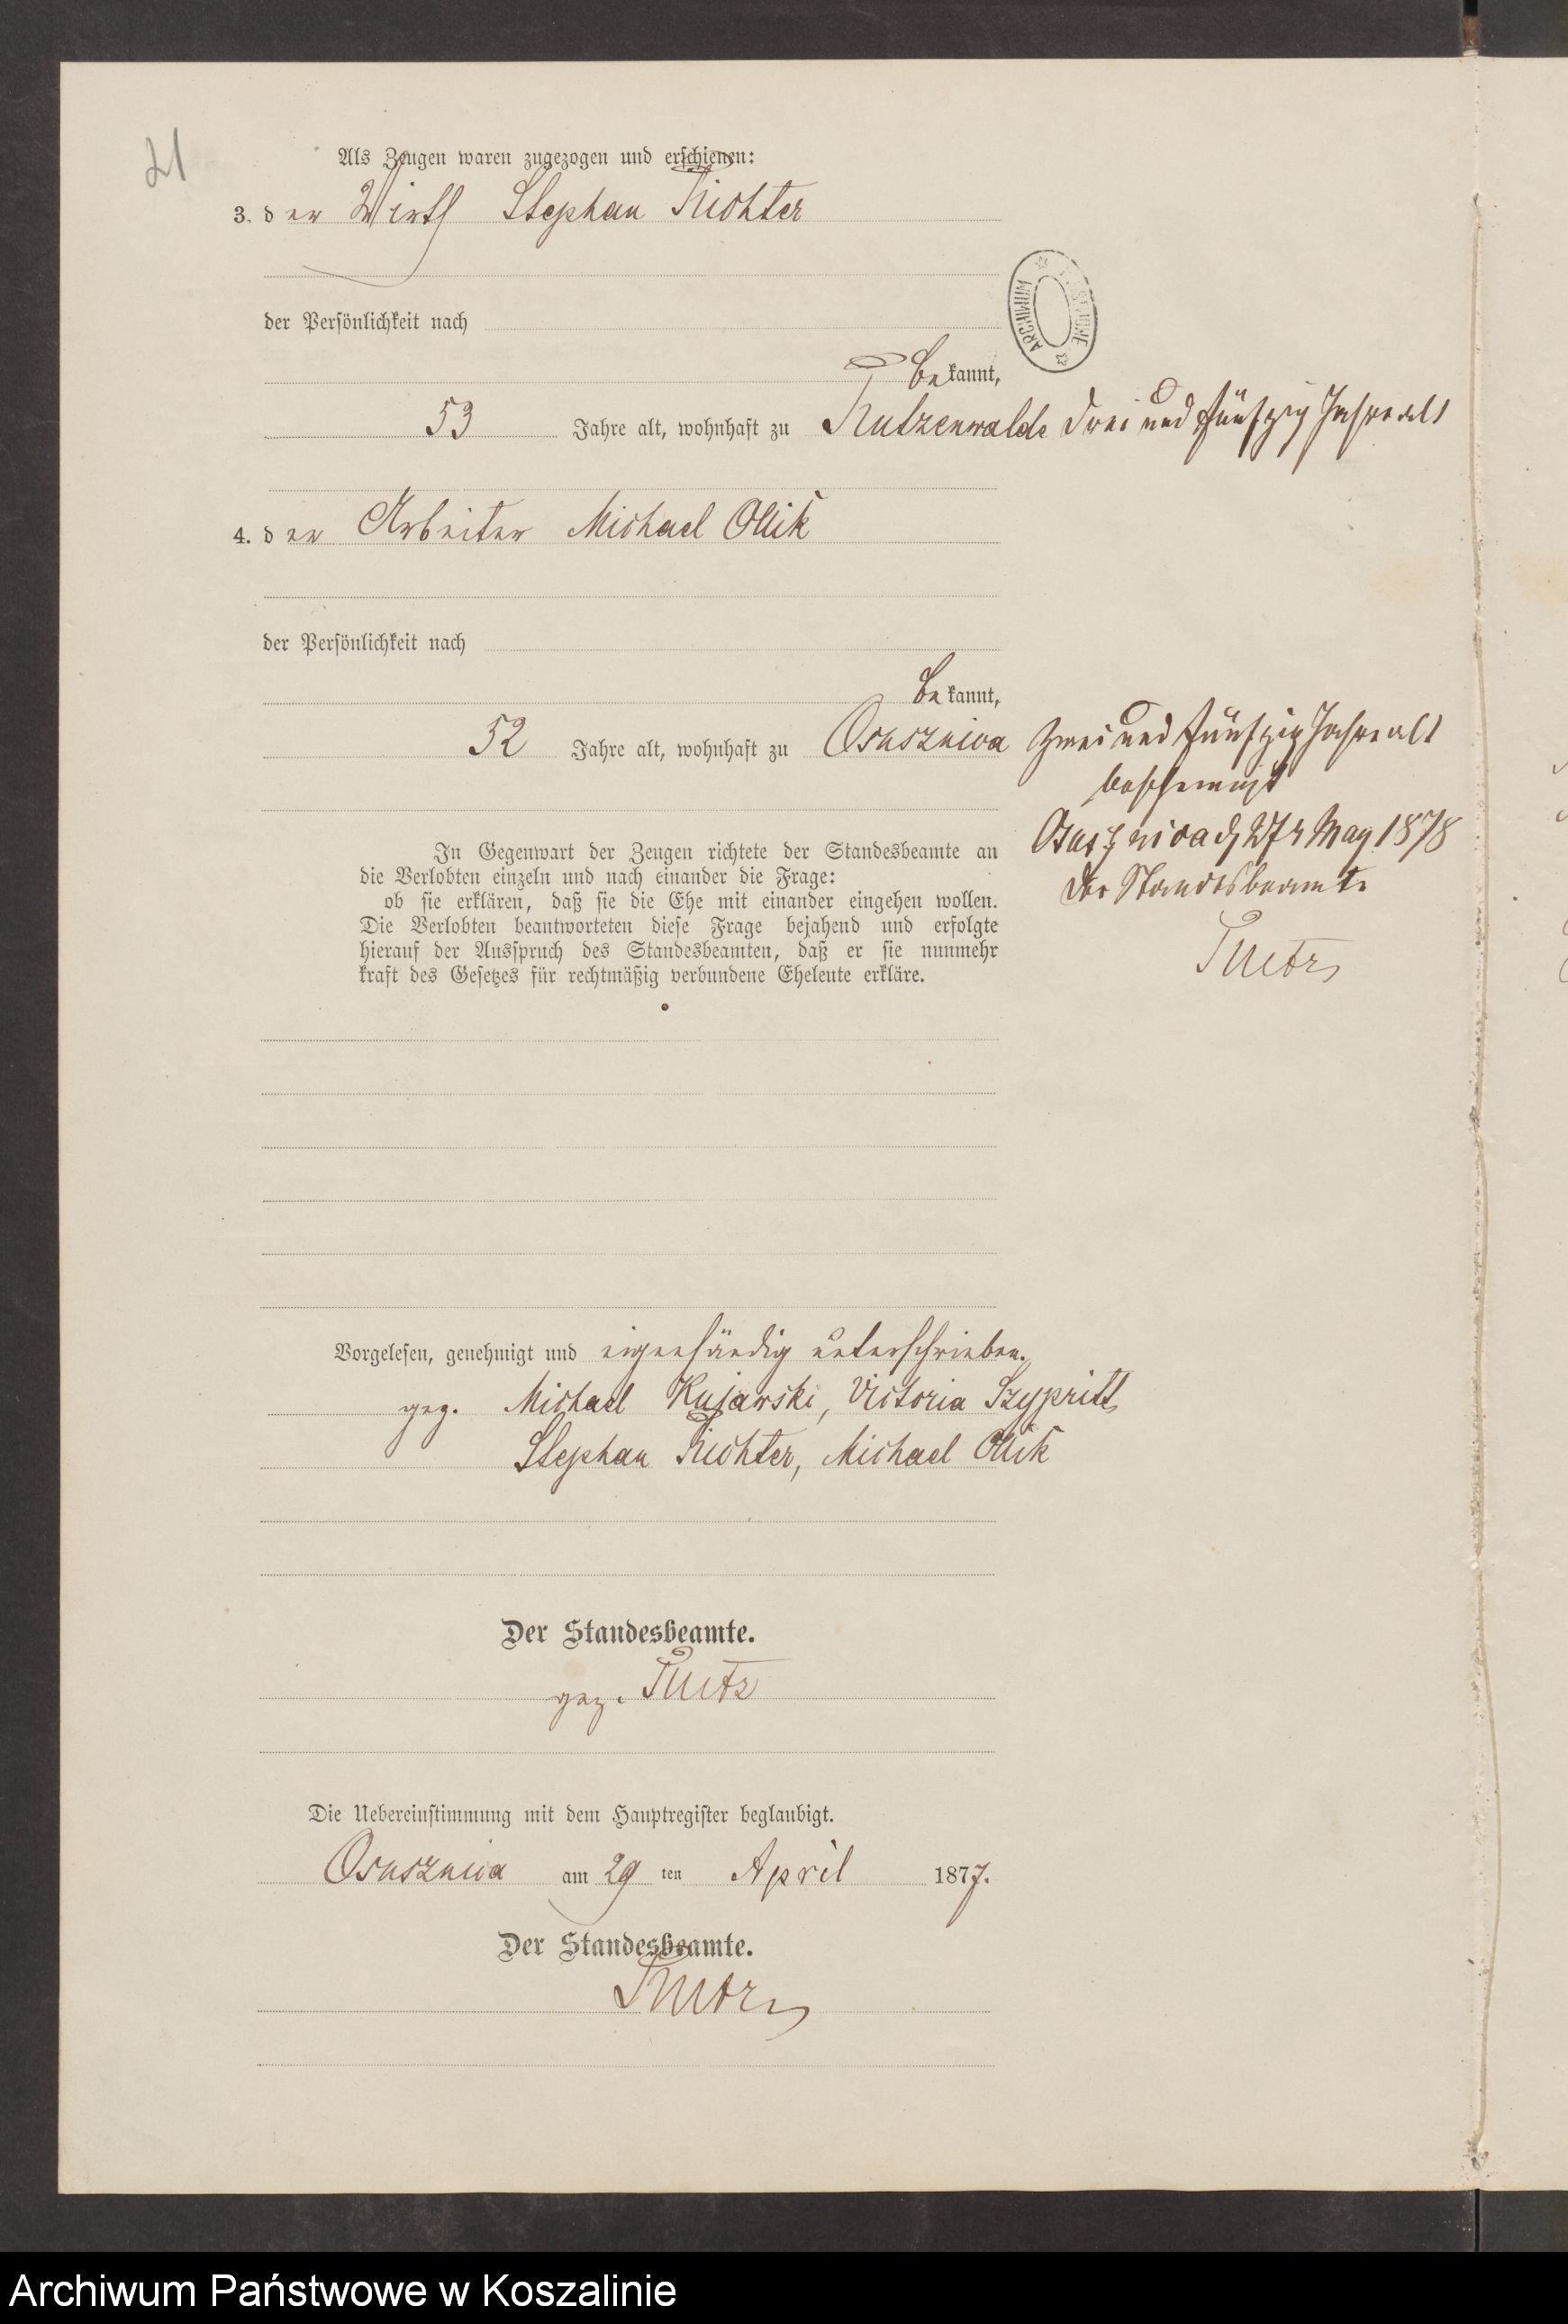 21
Als Zeugen waren zugezogen und erschienen:
3. der Wirth Stephan Richter
der Persönlichkeit nach
bekannt,
53 Jahre alt, wohnhaft zu Rutzenwalde drei und fünfzig Jahre alt
4. der Arbeiter Michael Ollik
der Persönlichkeit nach
bekannt,
52 Jahre alt, wohnhaft zu Osusznica zwei und fünfzig Jahre alt
bescheinigt
Osusznica d 27t May 1878
Der Standesbeamte
ARCHIWUM
In Gegenwart der Zeugen richtete der Standesbeamte an
die Verlobten einzeln und nach einander die Frage:
ob sie erklären, daß sie die Ehe mit einander eingehen wollen.
Die Verlobten beantworteten diese Frage bejahend und erfolgte
hierauf der Ausspruch des Standesbeamten, daß er sie nunmehr
kraft des Gesetzes für rechtmäßig verbundene Eheleute erkläre.
Vorgelesen, genehmigt und eigenhändig unterschrieben.
gez. Michael Kujawski, Victoria Szypritt
Stephan Richter, Michael Ollik
Der Standesbeamte.
gez.
Die Uebereinstimmung mit dem Hauptregister beglaubigt.
Osusznica am 29ten April 1877.
Der Standesbeamte.
Archiwum Państwowe w Koszalinie